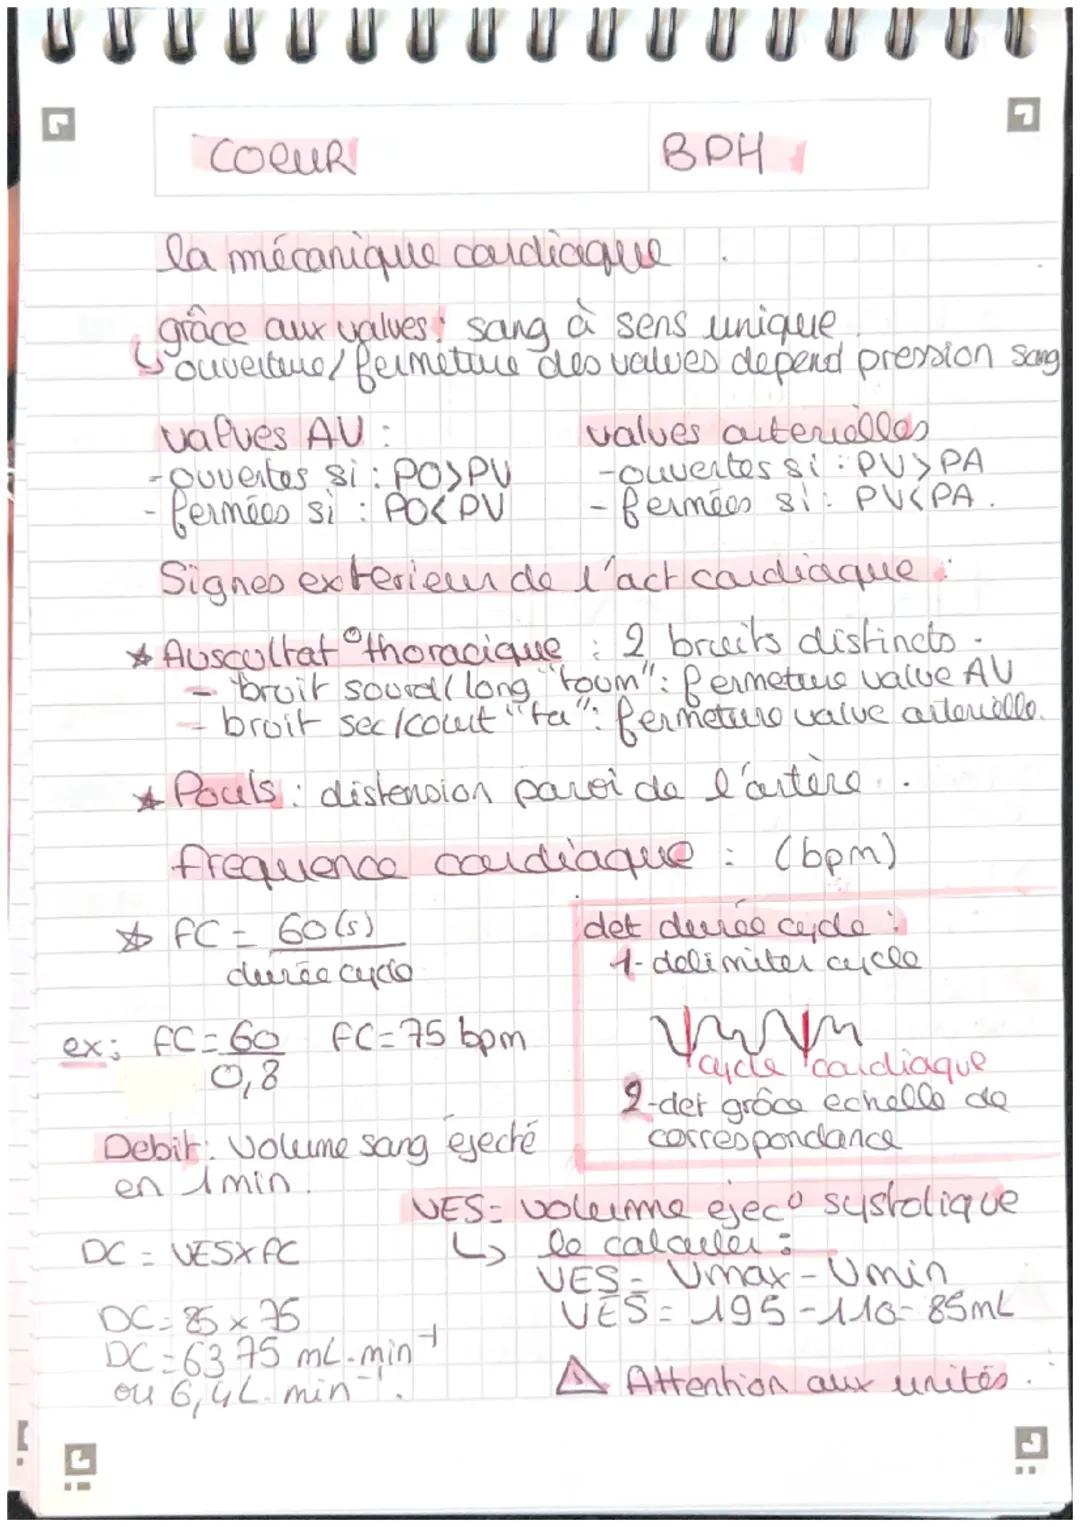 COEUR
BPH
la mécanique cardiaque
grâce aux valves : sang à sens unique
↳ ouverture/fermeture des valves depend pression sang
valves AV :
- ouvertes si : PO>PV
- fermées si : PO<PV
valves arterielles
- ouvertes si : PV>PA
- fermées si : PV<PA.
Signes exterieur de l'act cardiaque :
☆ Auscultat° thoracique : 2 bruits distincts.
- bruit sourd/long "toum" : fermeture valve AV
- bruit sec/court "ta" : fermeture valve arterielle.
☆ Pouls : distension paroi de l'artère.
frequence cardiaque : (bpm)
☆ FC = 60(s)
durée cycle
ex : FC = 60 FC = 75 bpm
0,8
det durée cycle :
1- delimiter cycle
cycle cardiaque
2- det grâce echelle de
correspondance
Debit : volume sang éjecté
en 1 min.
DC = VES×FC
DC = 85 × 75
DC = 6375 mL.min⁻¹
ou 6,4L.min⁻¹.
VES = volume ejec° systolique
↳ le calculer :
VES = Vmax - Vmin
VES = 195 - 110 = 85mL
⚠ Attention aux unités.